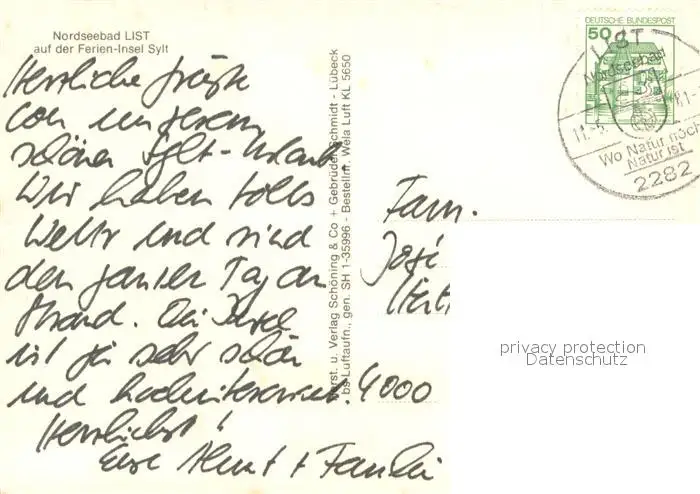 Nordseebad LIST
auf der Ferien-Insel Sylt
Herrliche Grüße
von unserem
schönen Sylt-Urlaub
Wir haben tolles
Wetter und sind
den ganzen Tag am
Strand. Die Insel
ist ja sehr schön
und hochinteressant.
Herzlichst!
Eure + Familie
Verlag Schöning & Co + Gebrüder Schmidt - Lübeck
Luftaufn., gen. SH 1-35996 - Bestellnr. Wela Luft KL 5650
DEUTSCHE BUNDESPOST
50
LIST
Nordseebad
11.-5. 81-
Wo Natur noch
Natur ist
2282
Fam.
4000
privacy protection
Datenschutz